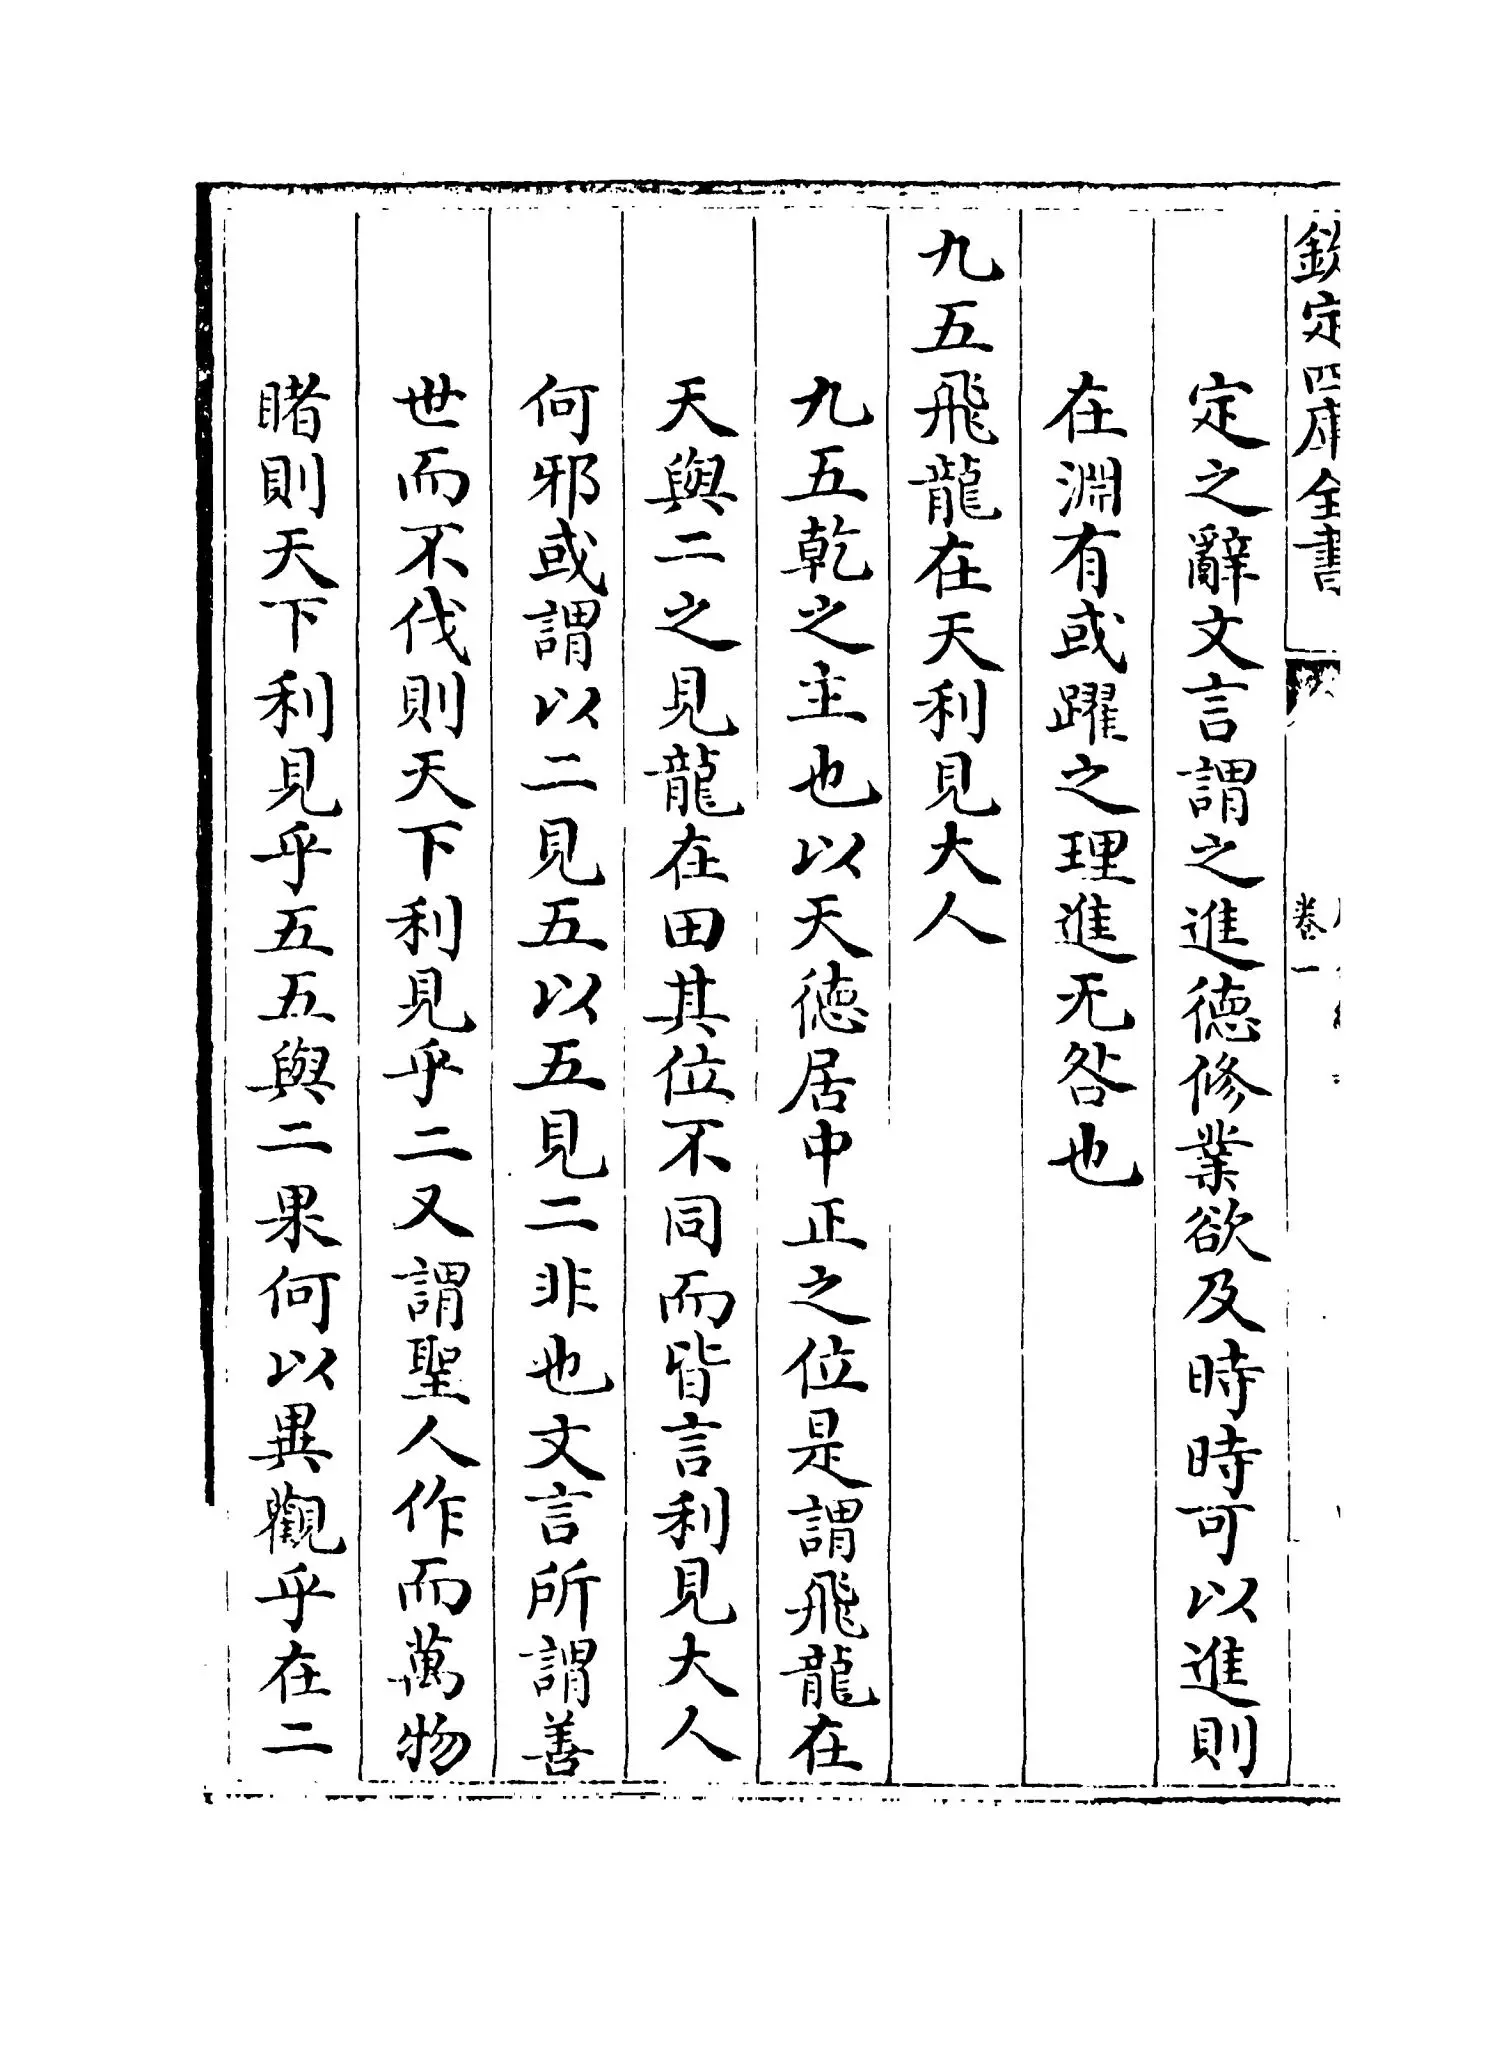 欽定四庫全書
卷一
定之辭文言謂之進德修業欲及時時可以進則
在淵有或躍之理進无咎也
九五飛龍在天利見大人
九五乾之主也以天德居中正之位是謂飛龍在
天與二之見龍在田其位不同而皆言利見大人
何邪或謂以二見五以五見二非也文言所謂善
世而不伐則天下利見乎二又謂聖人作而萬物
睹則天下利見乎五五與二果何以異觀乎在二